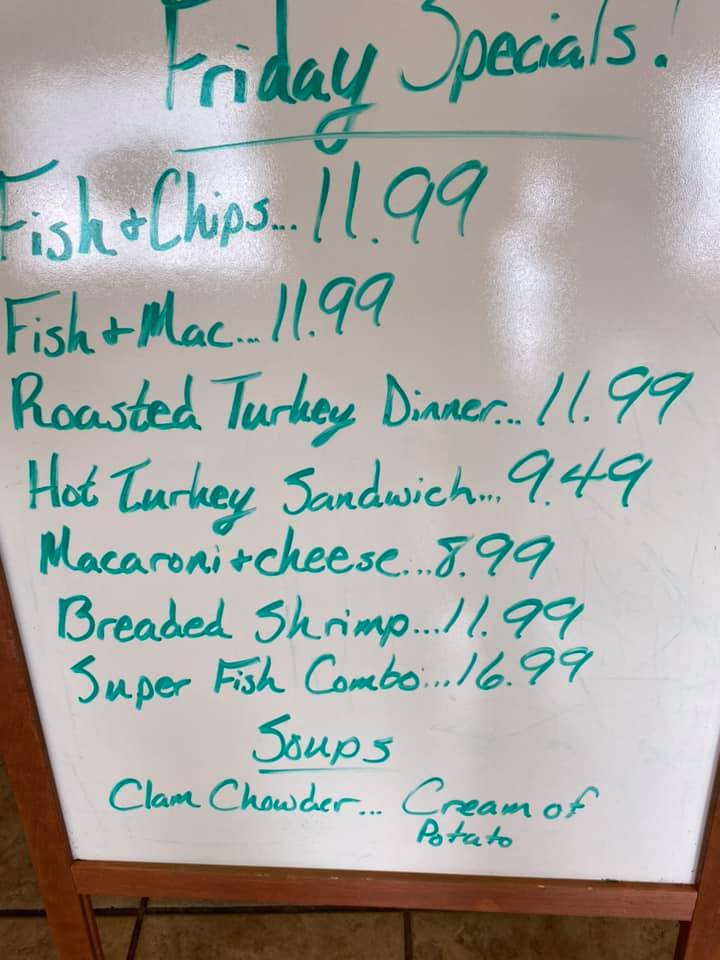 Friday Specials!
Fish + Chips... 11.99
Fish + Mac... 11.99
Roasted Turkey Dinner... 11.99
Hot Turkey Sandwich... 9.49
Macaroni + cheese... 8.99
Breaded Shrimp... 11.99
Super Fish Combo... 16.99
Soups
Clam Chowder... Cream of
Potato